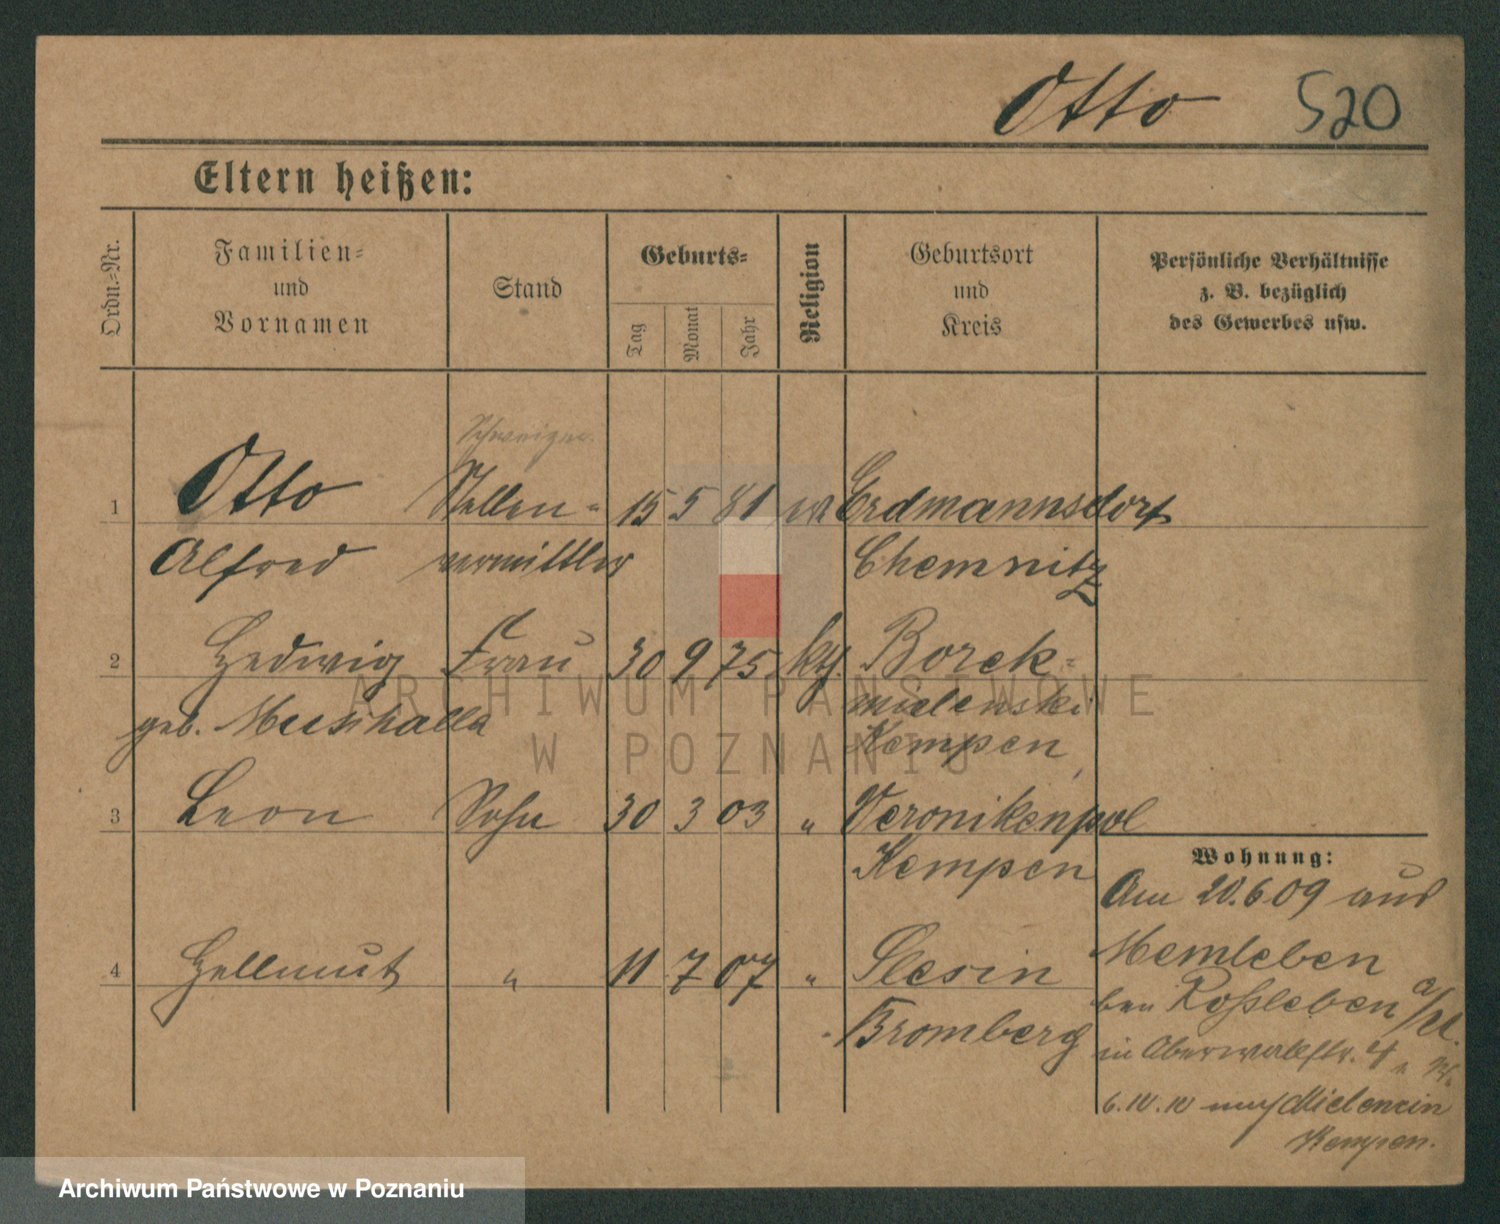 Otto 520
Eltern heißen:
Ordn.-Nr.
Familien-
und
Vornamen
Stand
Geburts-
Tag
Monat
Jahr
Religion
Geburtsort
und
Kreis
Persönliche Verhältnisse
z. B. bezüglich
des Gewerbes usw.
Schweizer
1 Otto Stellen- 15 5 81 Erdmannsdorf
Alfred vermittler Chemnitz
2 Hedwig Frau 30 9 75 kth. Borek-
geb. mielenski
Kempen
3 Leon Sohn 30 3 03 " Veronikenpol
Kempen
Wohnung:
Am 20.6 09 aus
Memleben
4 Hellmut " 11 7 07 " Slesin
Bromberg
Roßleben a/
in 4
6.10.10 nach
Kempen.
ARCHIWUM PAŃSTWOWE
W POZNANIU
Archiwum Państwowe w Poznaniu